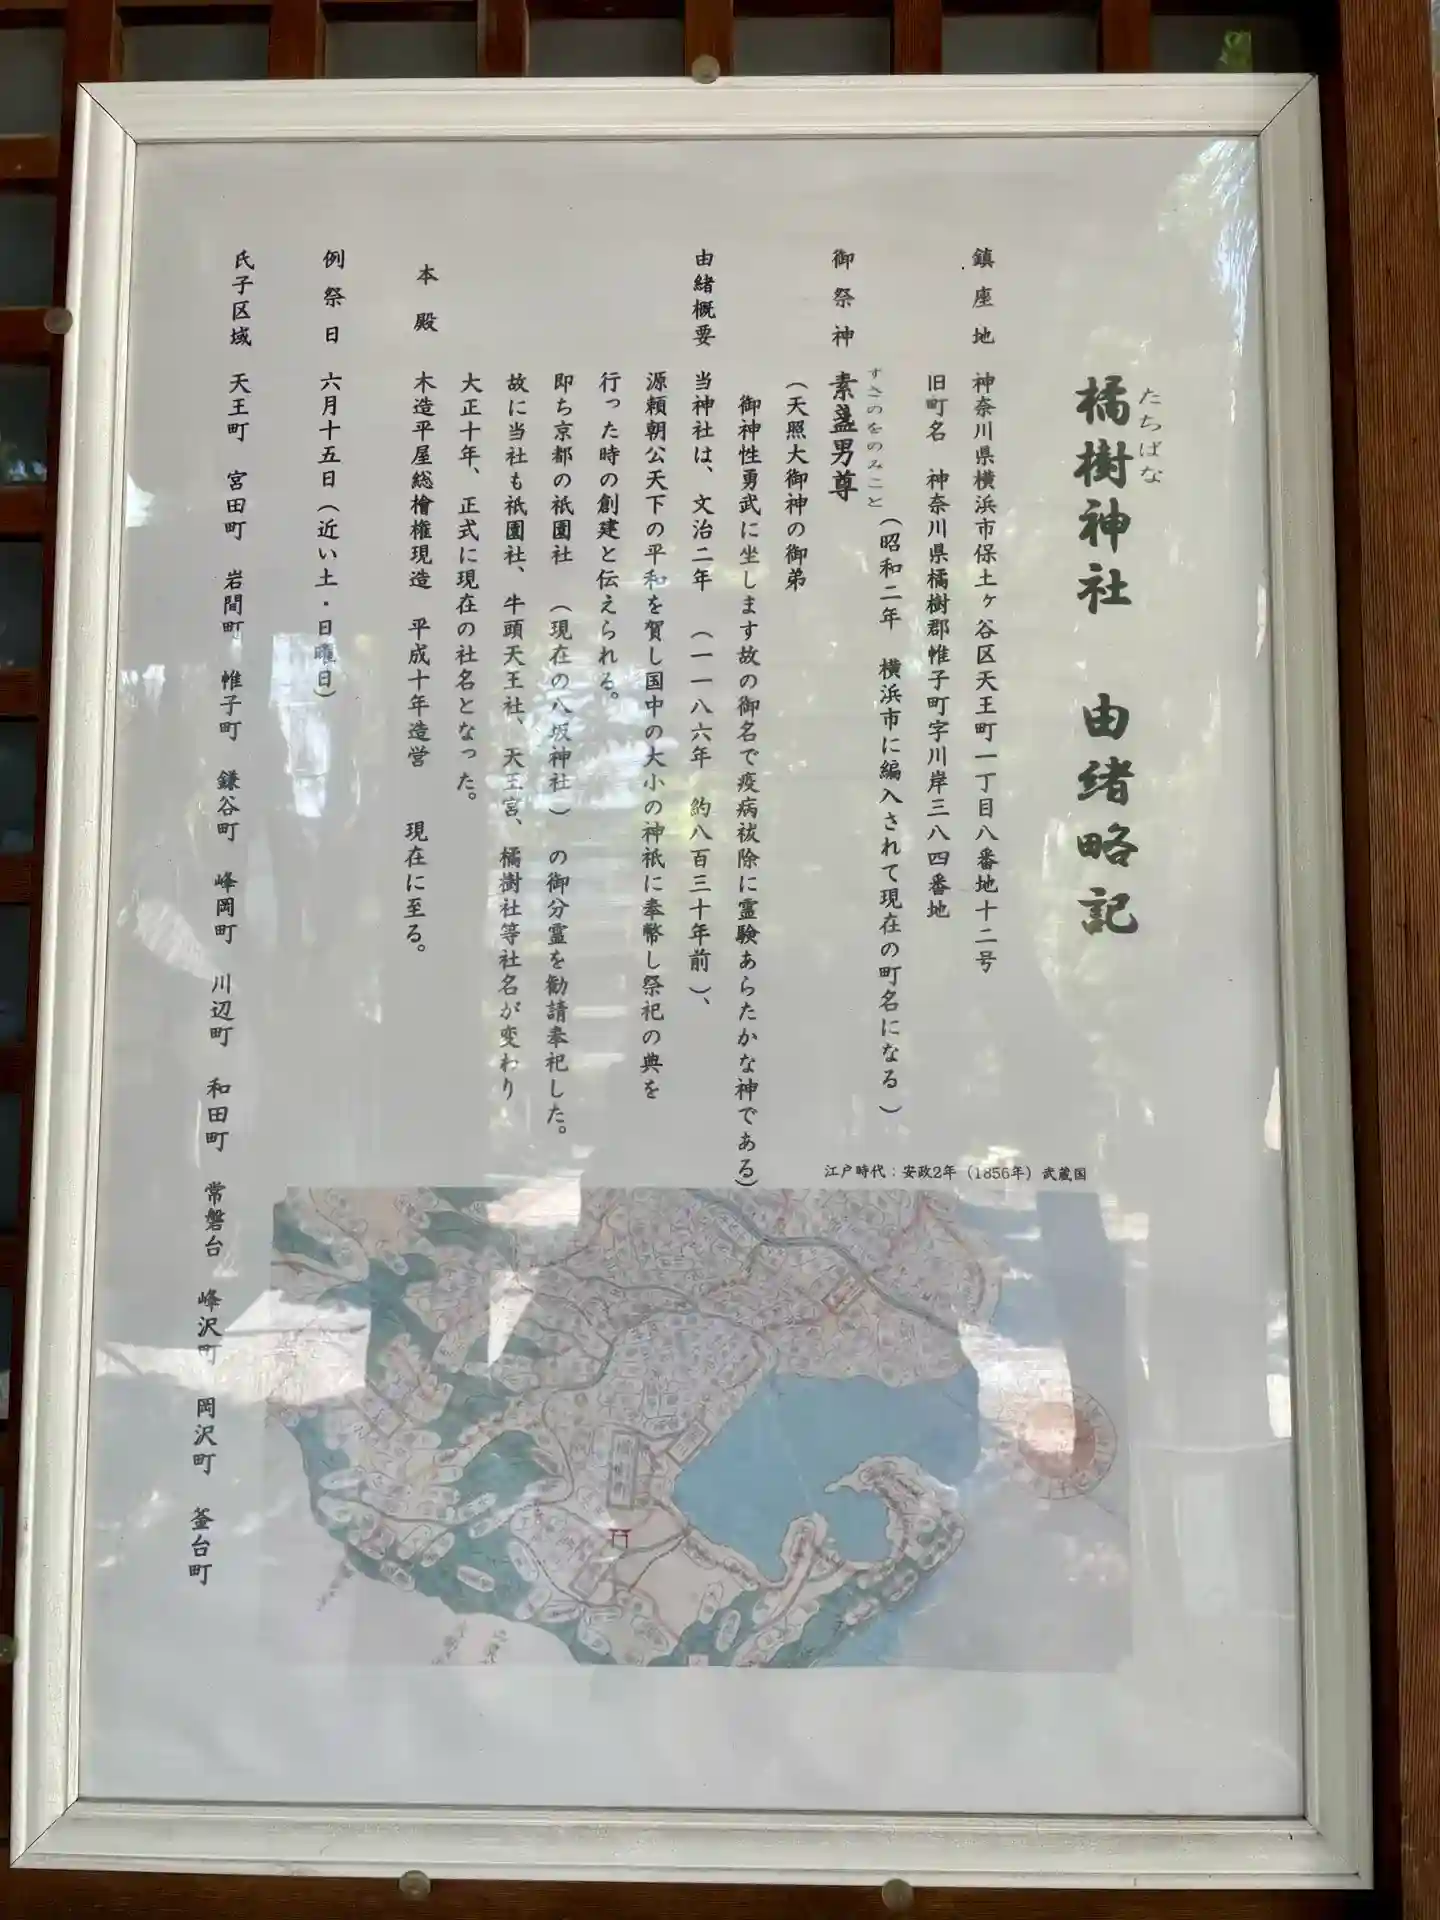 橘樹神社　由緒略記
たちばな
鎮座地　神奈川県横浜市保土ヶ谷区天王町一丁目八番地十二号
旧町名　神奈川県橘樹郡帷子町字川岸三八四番地
（昭和二年　横浜市に編入されて現在の町名になる）
御祭神　素盞男尊
すさのをのみこと
（天照大御神の御弟
御神性勇武に坐します故の御名で疫病祓除に霊験あらたかな神である）
由緒概要　当神社は、文治二年　（一一八六年　約八百三十年前）、
源頼朝公天下の平和を賀し国中の大小の神祇に奉幣し祭祀の典を
行った時の創建と伝えられる。
即ち京都の祇園社　（現在の八坂神社）　の御分霊を勧請奉祀した。
故に当社も祇園社、牛頭天王社、天王宮、橘樹社等社名が変わり
大正十年、正式に現在の社名となった。
本殿　木造平屋総檜権現造　平成十年造営　現在に至る。
例祭日　六月十五日（近い土・日曜日）
氏子区域　天王町　宮田町　岩間町　帷子町　鎌谷町　峰岡町　川辺町　和田町　常磐台　峰沢町　岡沢町　釜台町
江戸時代：安政2年（1856年）武蔵国